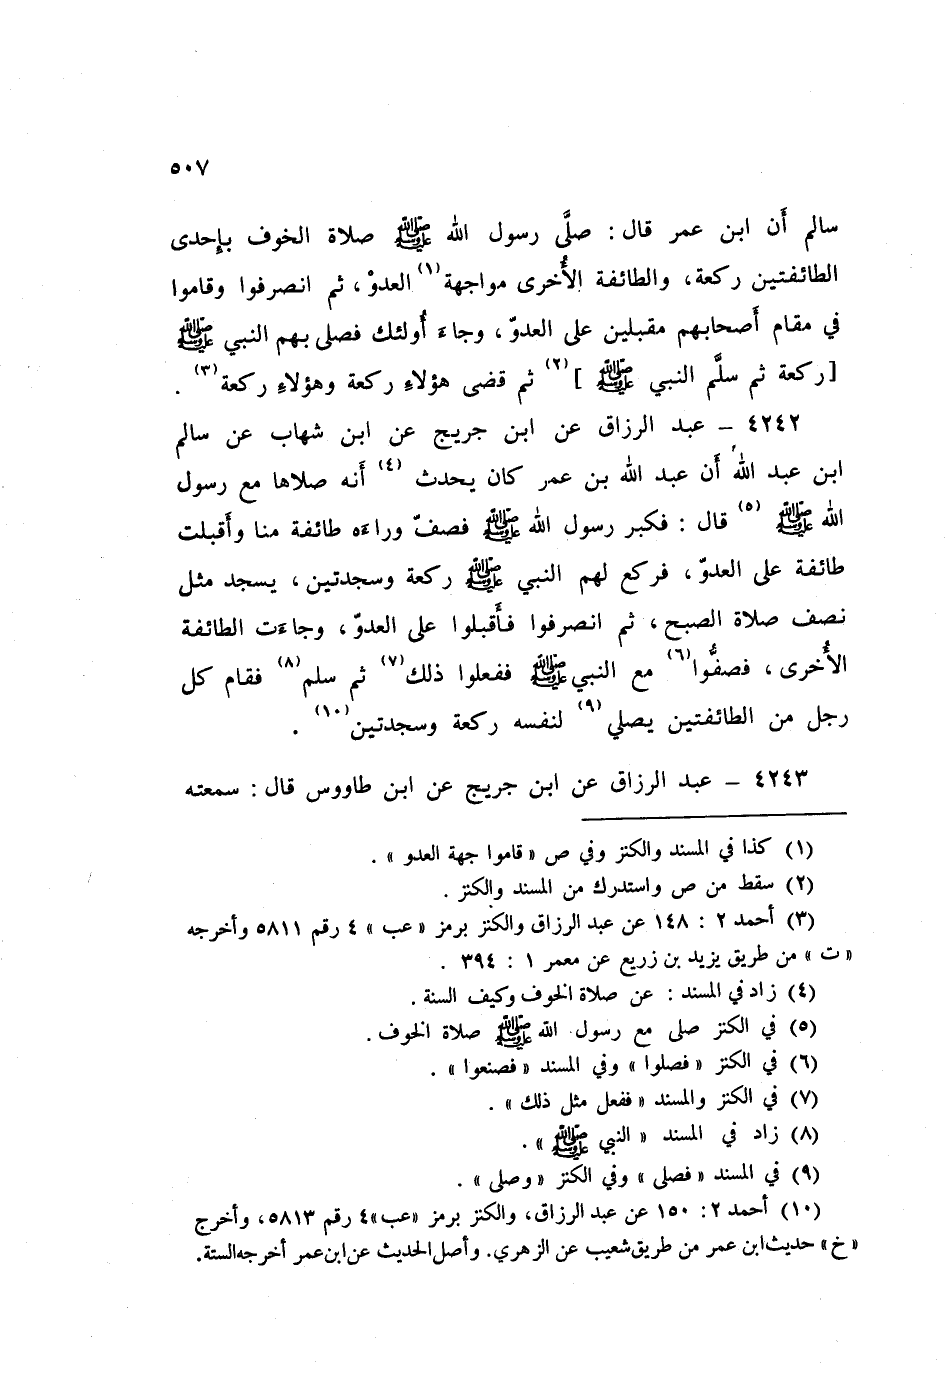 ٥٠٧
سالم أَن ابن عمر قال : صلَّى رسول الله ﷺ صلاة الخوف بإحدى
الطائفتين ركعة، والطائفة الأُخرى مواجهة(١) العدوّ، ثم انصرفوا وقاموا
في مقام أَصحابهم مقبلين على العدوّ، وجاءَ أُولئك فصلى بهم النبي ﷺ
[ركعة ثم سلَّم النبي ﷺ ](٢) ثم قضى هؤلاءِ ركعة وهؤلاءِ ركعة(٣) .
٤٢٤٢ – عبد الرزاق عن ابن جريج عن ابن شهاب عن سالم
ابن عبد الله أَن عبد الله بن عمر كان يحدث (٤) أَنه صلاها مع رسول
الله ﷺ (٥) قال : فكبر رسول الله ﷺ فصفّ وراءَه طائفة منا وأَقبلت
طائفة على العدوّ، فركع لهم النبي ﷺ ركعة وسجدتين، يسجد مثل
نصف صلاة الصبح، ثم انصرفوا فأَقبلوا على العدوّ، وجاءَت الطائفة
الأُخرى، فصفُّوا(٦) مع النبي ﷺ ففعلوا ذلك(٧) ثم سلم(٨) فقام كل
رجل من الطائفتين يصلي(٩) لنفسه ركعة وسجدتين(١٠) .
٤٢٤٣ – عبد الرزاق عن ابن جريج عن ابن طاووس قال : سمعته
(١) كذا في المسند والكنز وفي ص « قاموا جهة العدو » .
(٢) سقط من ص واستدرك من المسند والكنز .
(٣) أحمد ٢ : ١٤٨ عن عبد الرزاق والكنز برمز « عب » ٤ رقم ٥٨١١ وأخرجه
« ت » من طريق يزيد بن زريع عن معمر ١ : ٣٩٤ .
(٤) زاد في المسند : عن صلاة الخوف وكيف السنة .
(٥) في الكنز صلى مع رسول الله ﷺ صلاة الخوف .
(٦) في الكنز « فصلوا » وفي المسند « فصنعوا » .
(٧) في الكنز والمسند « ففعل مثل ذلك » .
(٨) زاد في المسند « النبي ﷺ » .
(٩) في المسند « فصلى » وفي الكنز « وصلى » .
(١٠) أحمد ٢: ١٥٠ عن عبد الرزاق، والكنز برمز «عب»٤ رقم ٥٨١٣، وأخرج
«خ» حديث ابن عمر من طريق شعيب عن الزهري. وأصل الحديث عن ابن عمر أخرجه الستة.